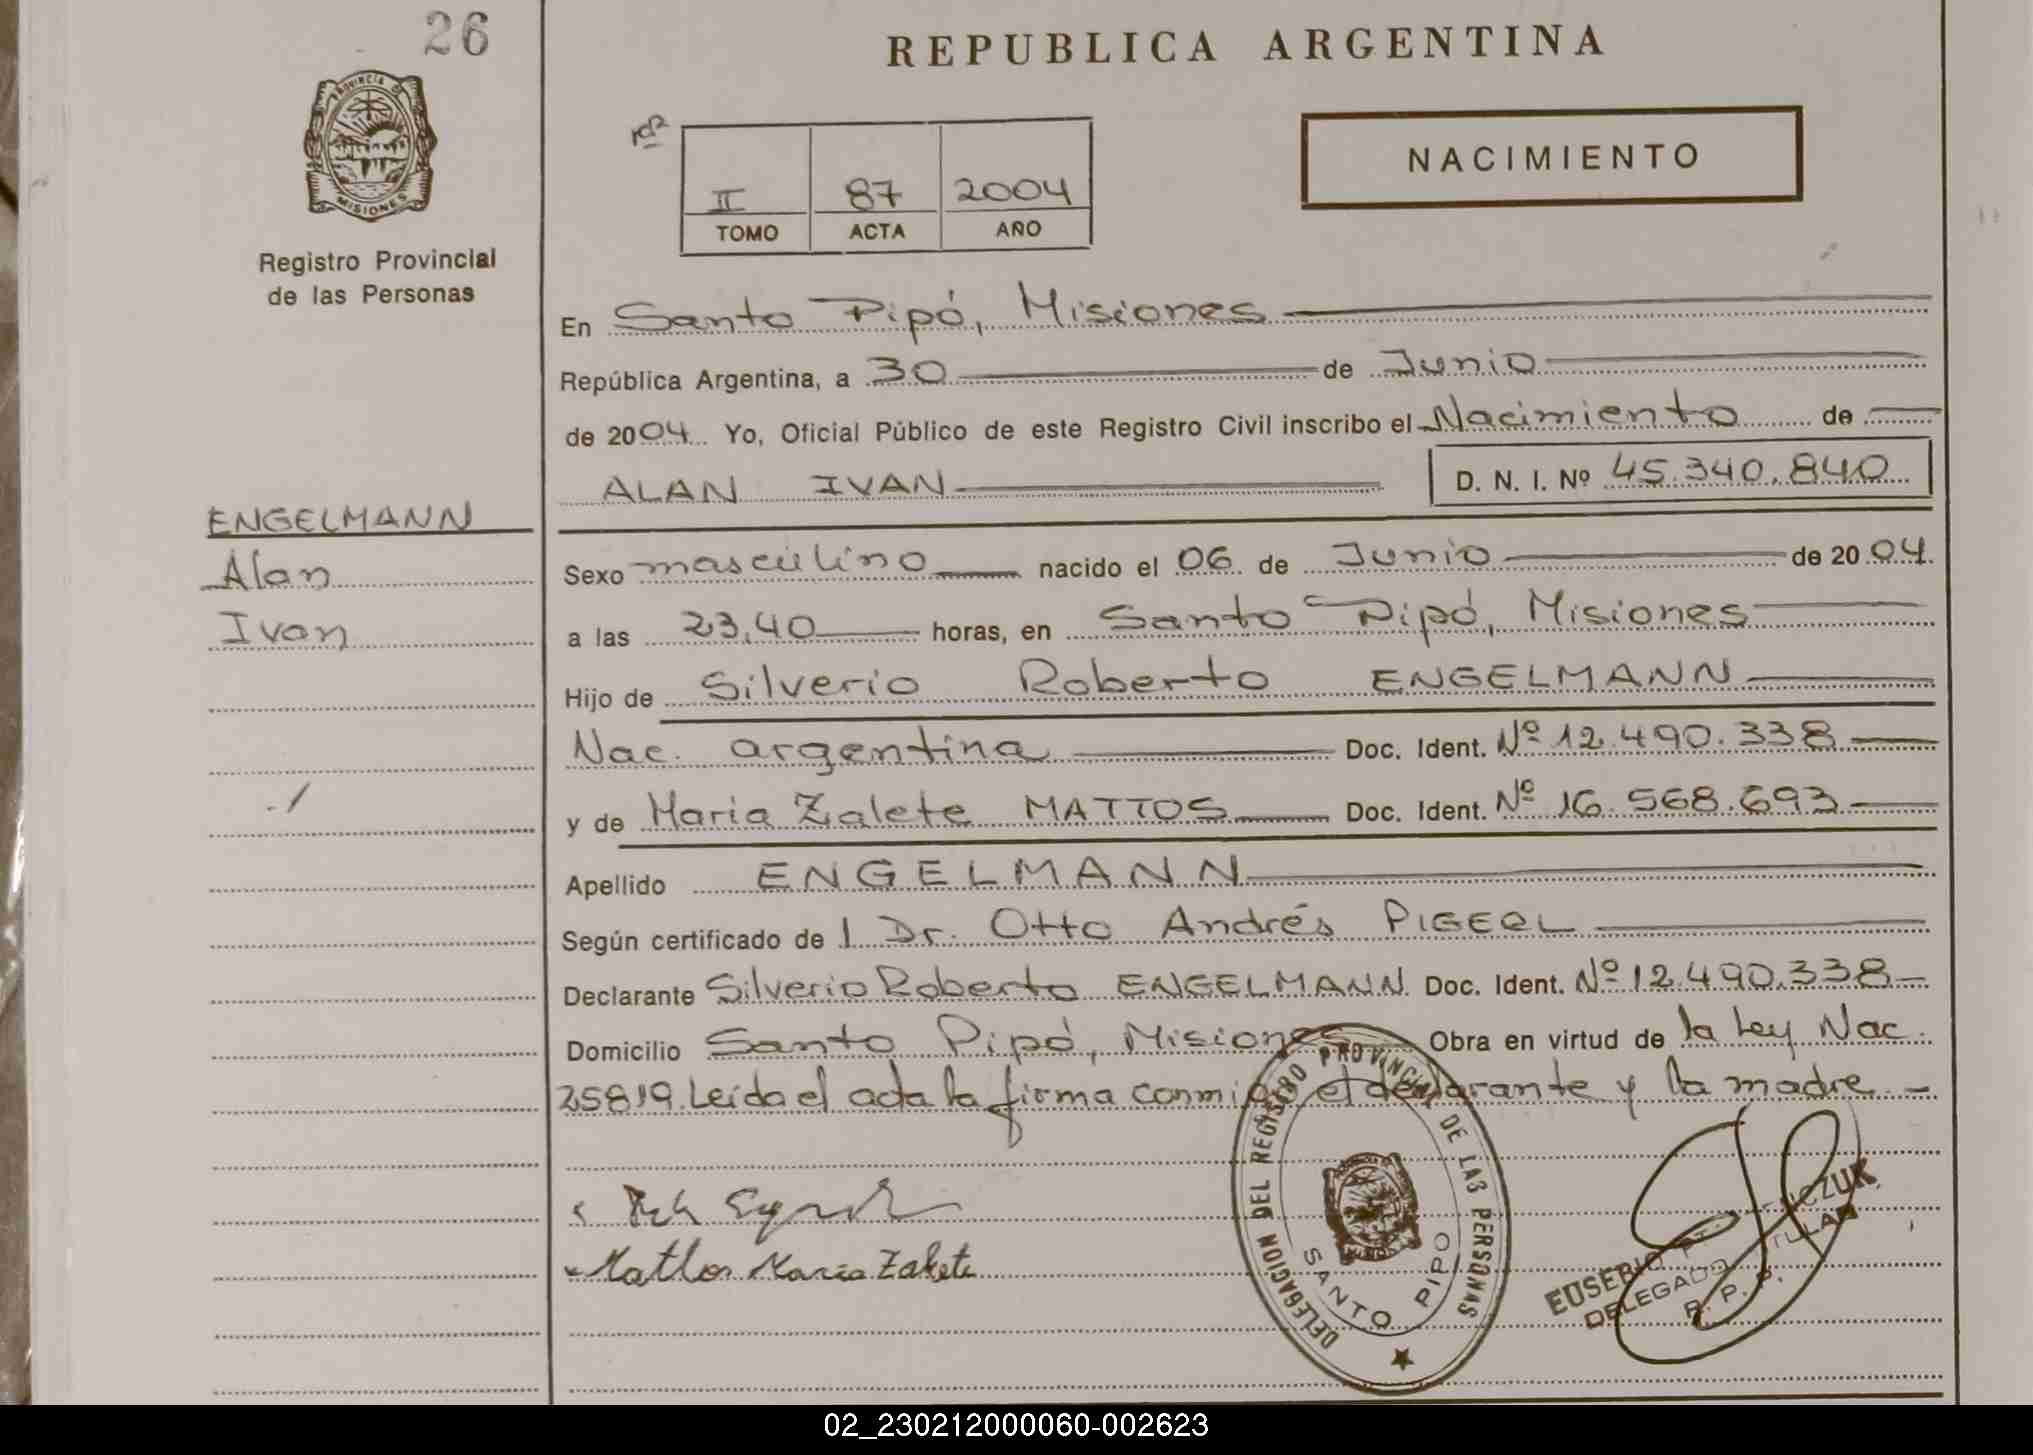 26
REPUBLICA ARGENTINA
PROVINCIA DE
MISIONES
Registro Provincial
de las Personas
II 87 2004
TOMO ACTA AÑO
NACIMIENTO
En Santo Pipó, Misiones
República Argentina, a 30 de Junio
de 2004 Yo, Oficial Público de este Registro Civil inscribo el Nacimiento de
ALAN IVAN D. N. I. Nº 45.340.840
ENGELMANN
Alan
Ivan
Sexo masculino nacido el 06 de Junio de 2004.
a las 23.40 horas, en Santo Pipó, Misiones
Hijo de Silverio Roberto ENGELMANN
Nac. argentina Doc. Ident. Nº 12.490.338
y de Maria Zalete MATTOS Doc. Ident. Nº 16.568.693
Apellido ENGELMANN
Según certificado de l Dr. Otto Andrés
Declarante Silverio Roberto ENGELMANN Doc. Ident. Nº 12.490.338
Domicilio Santo Pipó, Misiones Obra en virtud de la Ley Nac.
25819. Leída el acta la firma conmigo el declarante y la madre
Mattos Maria Zalete
DELEGACION DEL REGISTRO PROVINCIAL DE LAS PERSONAS
SANTO PIPO
EUSEBIO
DELEGADO TITULAR
R. P. P.
02_230212000060-002623